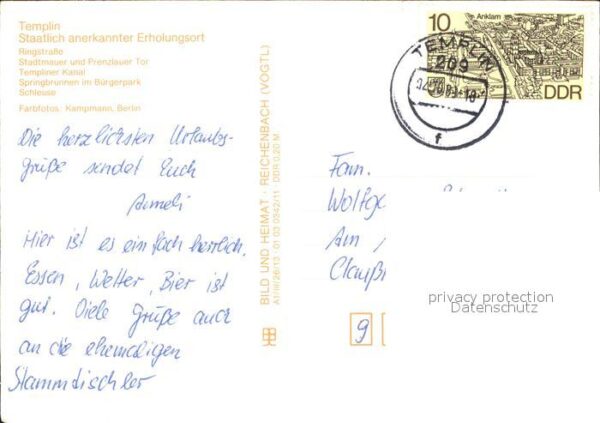 Templin
Staatlich anerkannter Erholungsort
Ringstraße
Stadtmauer und Prenzlauer Tor
Templiner Kanal
Springbrunnen im Bürgerpark
Schleuse
Farbfotos: Kampmann, Berlin
Die herzlichsten Urlaubs-
grüße sendet Euch
Anneli
Hier ist es einfach herrlich.
Essen, Wetter, Bier ist
gut. Viele Grüße auch
an die ehemaligen
Stammtischler
BILD UND HEIMAT · REICHENBACH (VOGTL)
A1/III/26/13 01 03 0342/11 DDR 0,20 M
10
Anklam
DDR
TEMPLIN
209
f
Fam.
Wolfg
Am
Claußn
9
privacy protection
Datenschutz